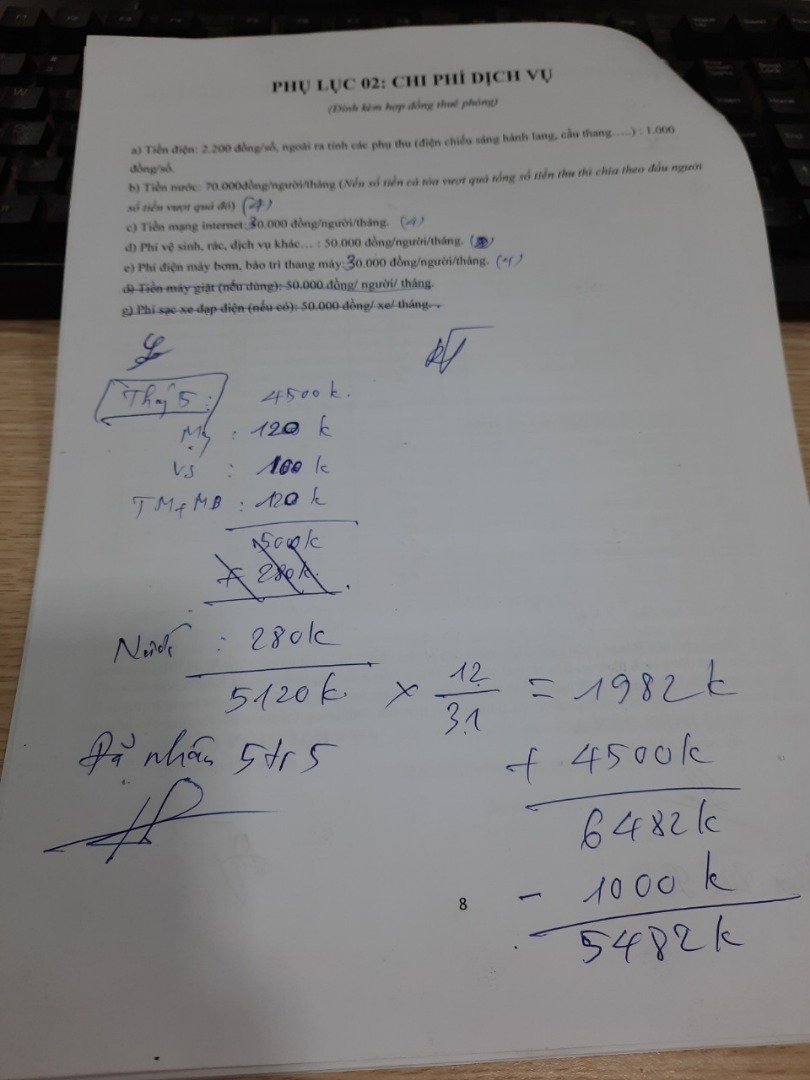 PHỤ LỤC 02: CHI PHÍ DỊCH VỤ
(Đính kèm hợp đồng thuê phòng)
a) Tiền điện: 2.200 đồng/số, ngoài ra tính các phụ thu (điện chiếu sáng hành lang, cầu thang…..) : 1.000
đồng/số.
b) Tiền nước: 70.000đồng/người/tháng (Nếu số tiền cả tòa vượt quá tổng số tiền thu thì chia theo đầu người
số tiền vượt quá đó) (4)
c) Tiền mạng internet: 30.000 đồng/người/tháng. (4)
d) Phí vệ sinh, rác, dịch vụ khác… : 50.000 đồng/người/tháng.
e) Phí điện máy bơm, bảo trì thang máy: 30.000 đồng/người/tháng. (4)
d) Tiền máy giặt (nếu dùng): 50.000 đồng/ người/ tháng.
g) Phí sạc xe đạp điện (nếu có): 50.000 đồng/ xe/ tháng.
Tháng 5 : 4500k.
Mạng : 120 k
VS : 100 k
TM+MB : 120 k
500k
+ 280k.
Nước : 280k
5120k × 12/31 = 1982k
Đã nhận 5tr5
+ 4500k
6482k
- 1000k
5482k
8